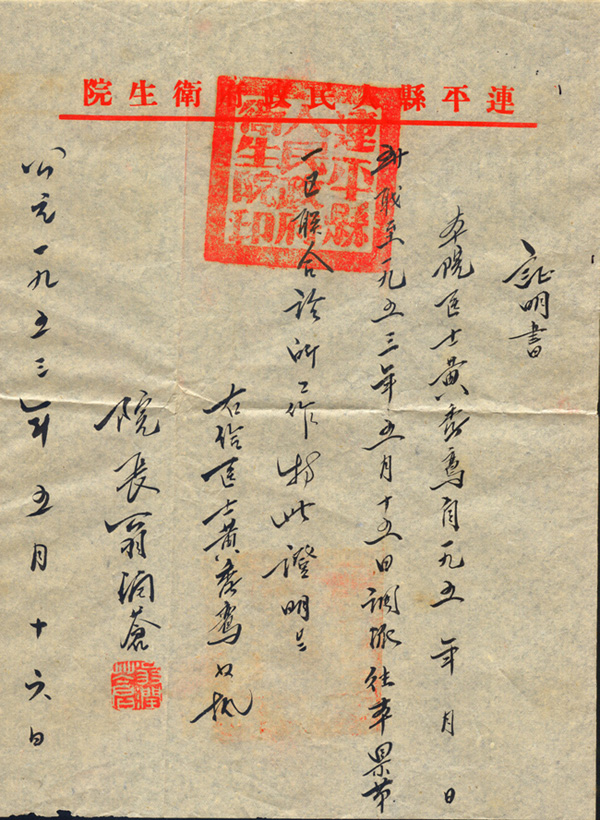 連平縣人民政府衛生院
連平縣人民政府衛生院印
証明書
本院医士黃秀自一九五 年 月 日
到職至一九五三年五月十五日調派往本县第
一区联合診所工作特此證明
右给医士黃秀收执
院長翁潤蒼
公元一九五三年五月十六日